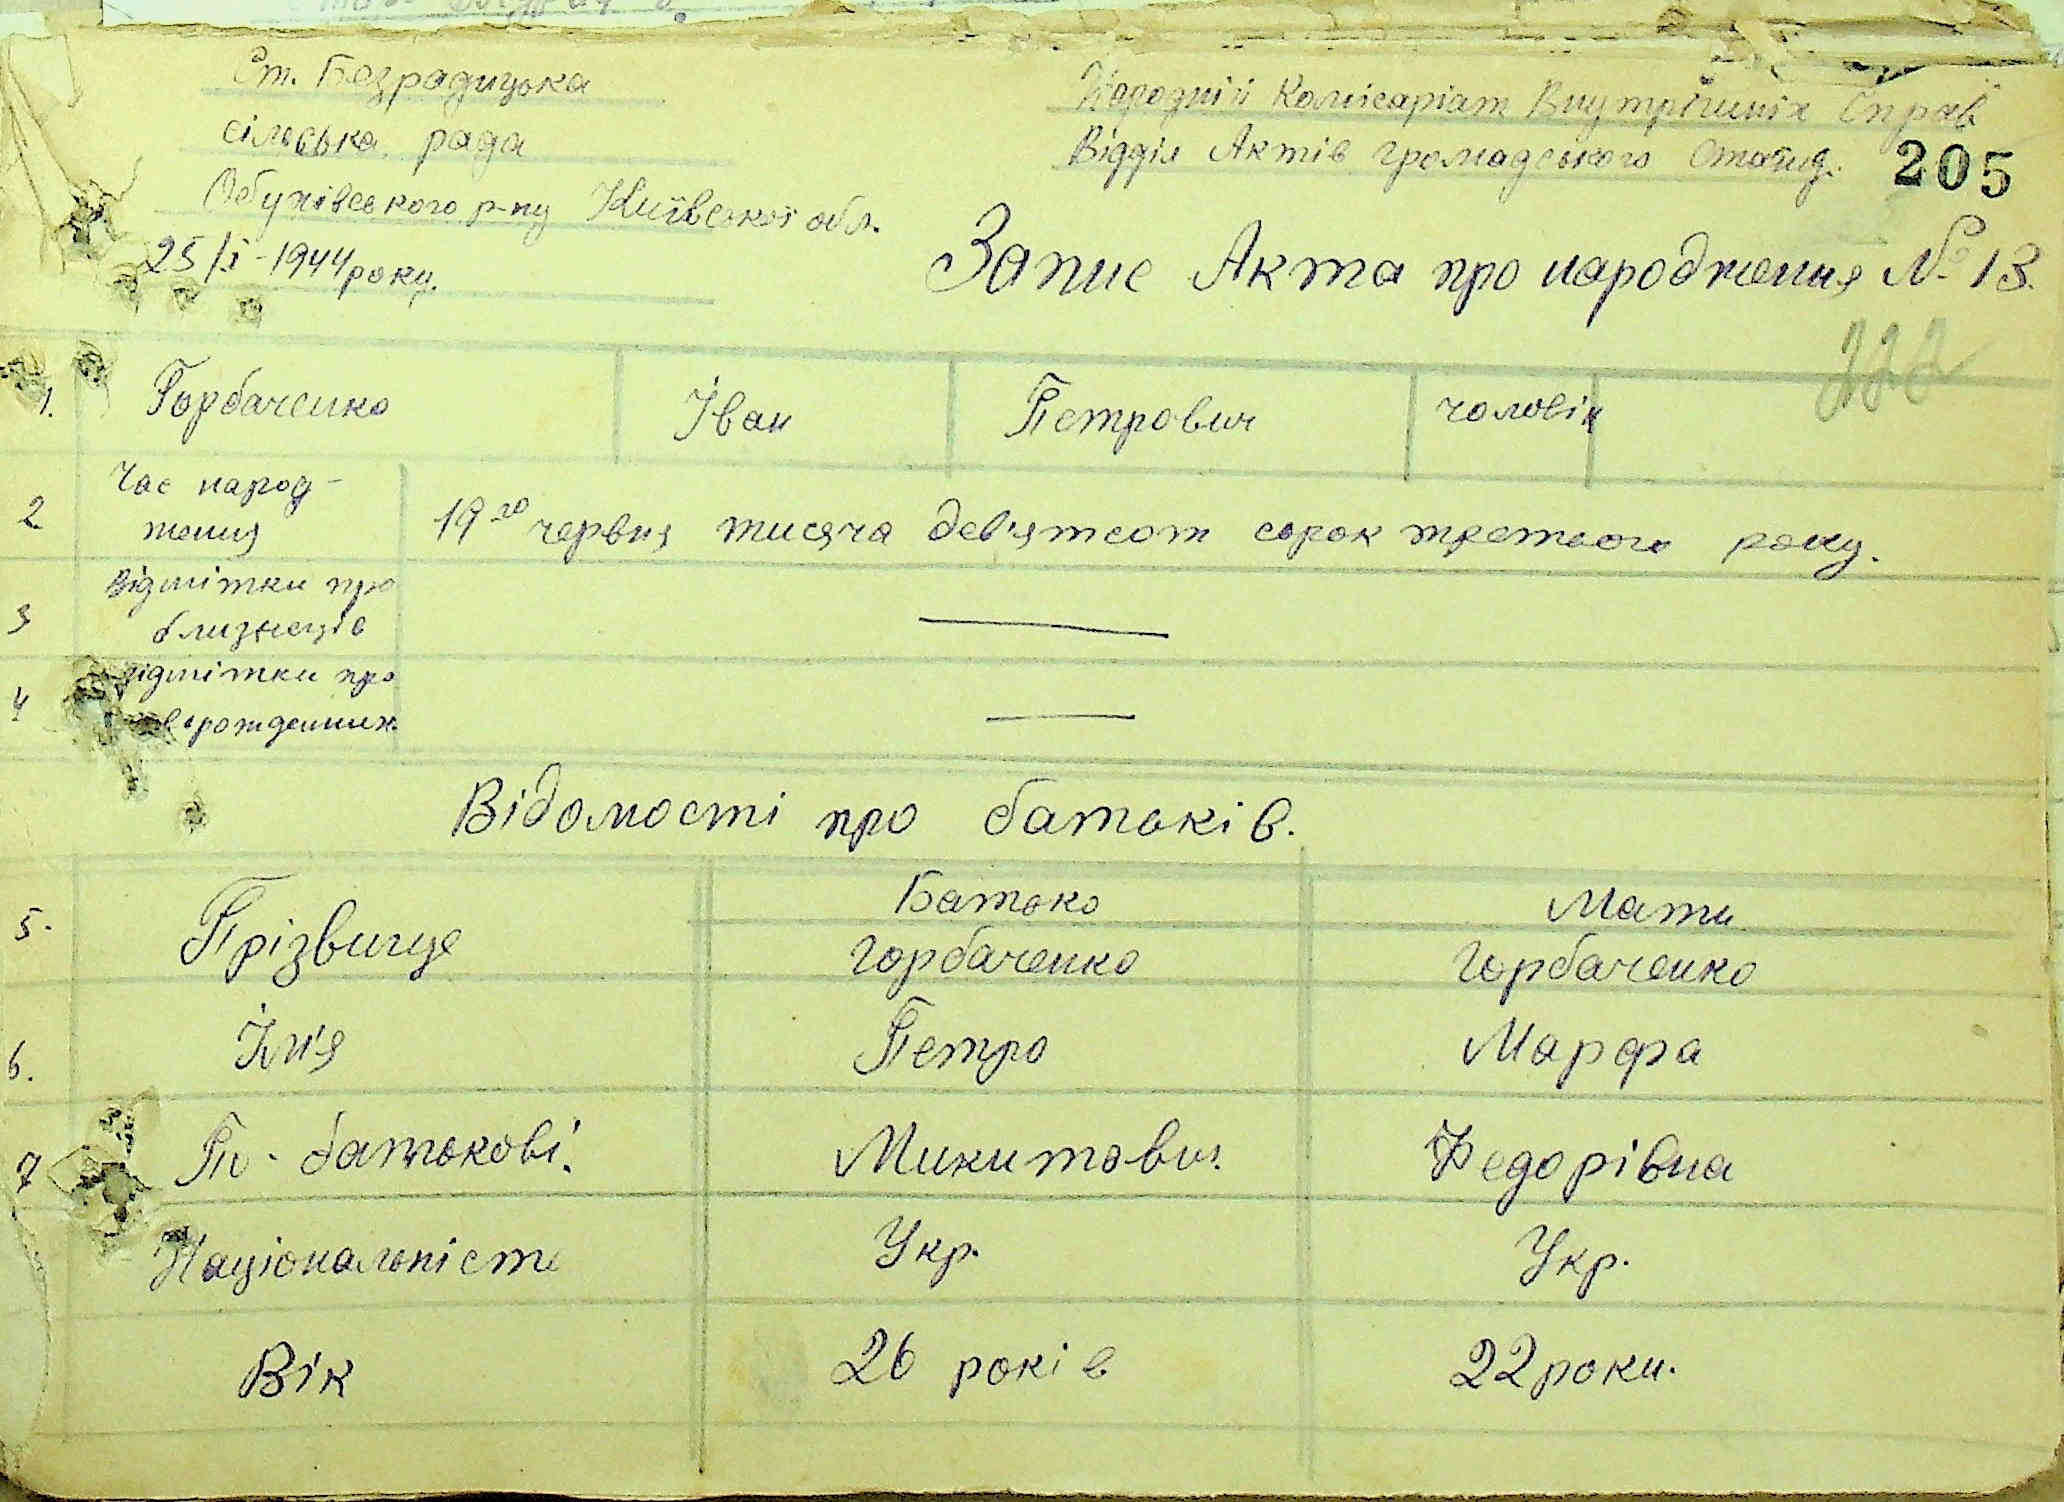 Ст. Безрадицька
сільська рада
Обухівського р-ну Київської обл.
25/I-1944 року.
Народній Комісаріат Внутрішніх Справ
Відділ Актів громадського Стану.
205
Запис Акта про народження № 13.
222
1. Горбаченко Іван Петрович чоловік
2 Час народ-
ження
19го червня тисяча дев'ятсот сорок третього року.
3 Відмітки про
близнеців
4 відмітки про
рожденних.
Відомості про батьків.
Батько Мати
5. Прізвище Горбаченко Горбаченко
6. Ім'я Петро Марфа
7 По-батькові. Микитович Федорівна
Національність Укр. Укр.
Вік 26 років 22 роки.